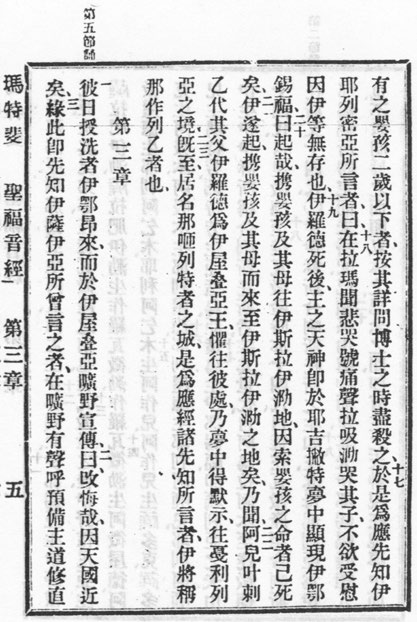 第五節註
有之嬰孩二歲以下者、按其詳問博士之時盡殺之、十七於是爲應先知伊
耶列密亞所言者曰、十八在拉瑪聞悲哭號痛聲、拉吸泐哭其子、不欲受慰
因伊等無存也、十九伊羅德死後、主之天神卽於耶吉撇特夢中顯現伊鄂
錫福曰、二十起哉、携嬰孩及其母往伊斯拉伊泐地、因索嬰孩之命者已死
矣、二一伊遂起、携嬰孩及其母而來至伊斯拉伊泐之地矣、二二乃聞阿兒叶剌
乙代其父伊羅德爲伊屋疊亞王、懼往彼處、乃夢中得默示、往戞利列
亞之境、二三旣至、居名那咂列特者之城、是爲應經諸先知所言者、伊將稱
那作列乙者也、
第三章
一彼日授洗者伊鄂昻來、而於伊屋疊亞曠野宣傳曰、二攺悔哉、因天國近
矣、三緣此卽先知伊薩伊亞所曾言之者、在曠野有聲呼、預備主道、修直
瑪特斐 聖福音經 第三章 五